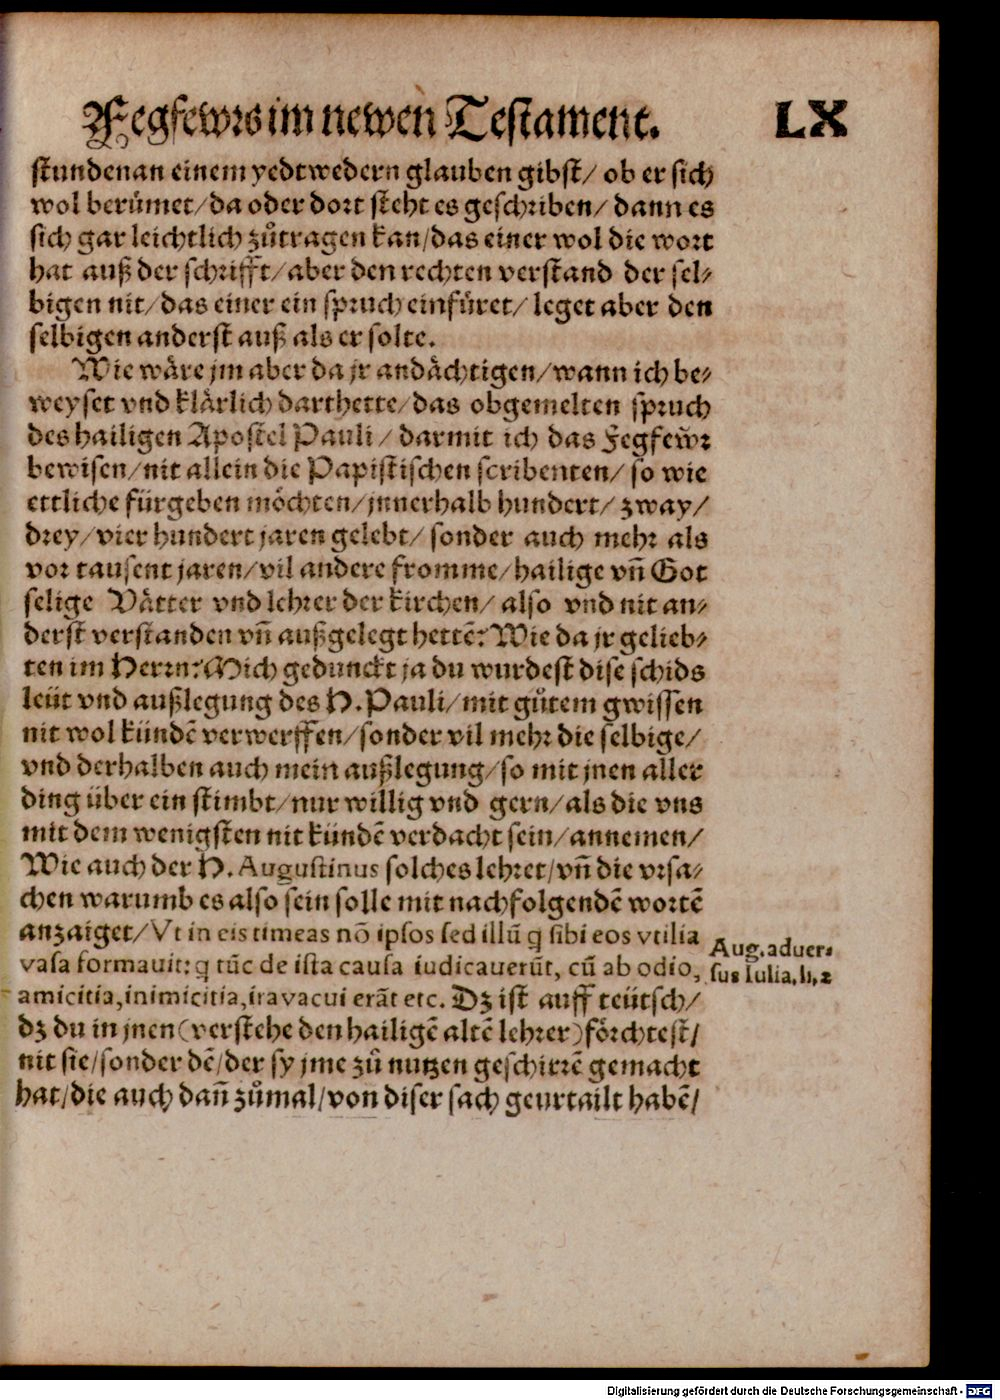 Fegfewrs im newen Testament. LX
stunden an einem yedtwedern glauben gibst/ ob er sich
wol berümet/da oder dort steht es geschriben/ dann es
sich gar leichtlich zůtragen kan/das einer wol die wort
hat auß der schrifft/aber den rechten verstand der sel⸗
bigen nit/das einer ein spruch einfüret/ leget aber den
selbigen anderst auß als er solte.
Wie wäre jm aber da jr andächtigen/wann ich be⸗
weyset vnd klärlich darthette/das obgemelten spruch
des hailigen Apostel Pauli / darmit ich das Fegfewr
bewisen/nit allein die Papistischen scribenten/ so wie
ettliche fürgeben möchten/jnnerhalb hundert/ zway/
drey/vier hundert jaren gelebt/ sonder auch mehr als
vor tausent jaren/vil andere fromme/hailige vñ Got
selige Vätter vnd lehrer der kirchen/ also vnd nit an⸗
derst verstanden vñ außgelegt hettē? Wie da jr gelieb⸗
ten im Herrn? Mich gedunckt ja du wurdest dise schids
leüt vnd außlegung des H. Pauli/ mit gůtem gwissen
nit wol kündē verwerffen/sonder vil mehr die selbige/
vnd derhalben auch mein außlegung/so mit jnen aller
ding über ein stimbt/nur willig vnd gern/als die vns
mit dem wenigsten nit kündē verdacht sein/annemen/
Wie auch der H. Augustinus solches lehret/vñ die vrsa⸗
chen warumb es also sein solle mit nachfolgendē wortē
anzaiget/Vt in eis timeas nō ipsos sed illū q sibi eos vtilia
vasa formauit: q tūc de ista causa iudicauerūt, cū ab odio,
amicitia, inimicitia, ira vacui erāt etc. Dz ist auff teütsch/
dz du in jnen (verstehe den hailigē altē lehrer) förchtest/
nit sie/sonder dē/der sy jme zů nutzen geschirrē gemacht
hat/die auch dañ zůmal/von diser sach geurtailt habē/
Aug. aduer⸗
sus Iulia. li. 2
Digitalisierung gefördert durch die Deutsche Forschungsgemeinschaft - DFG